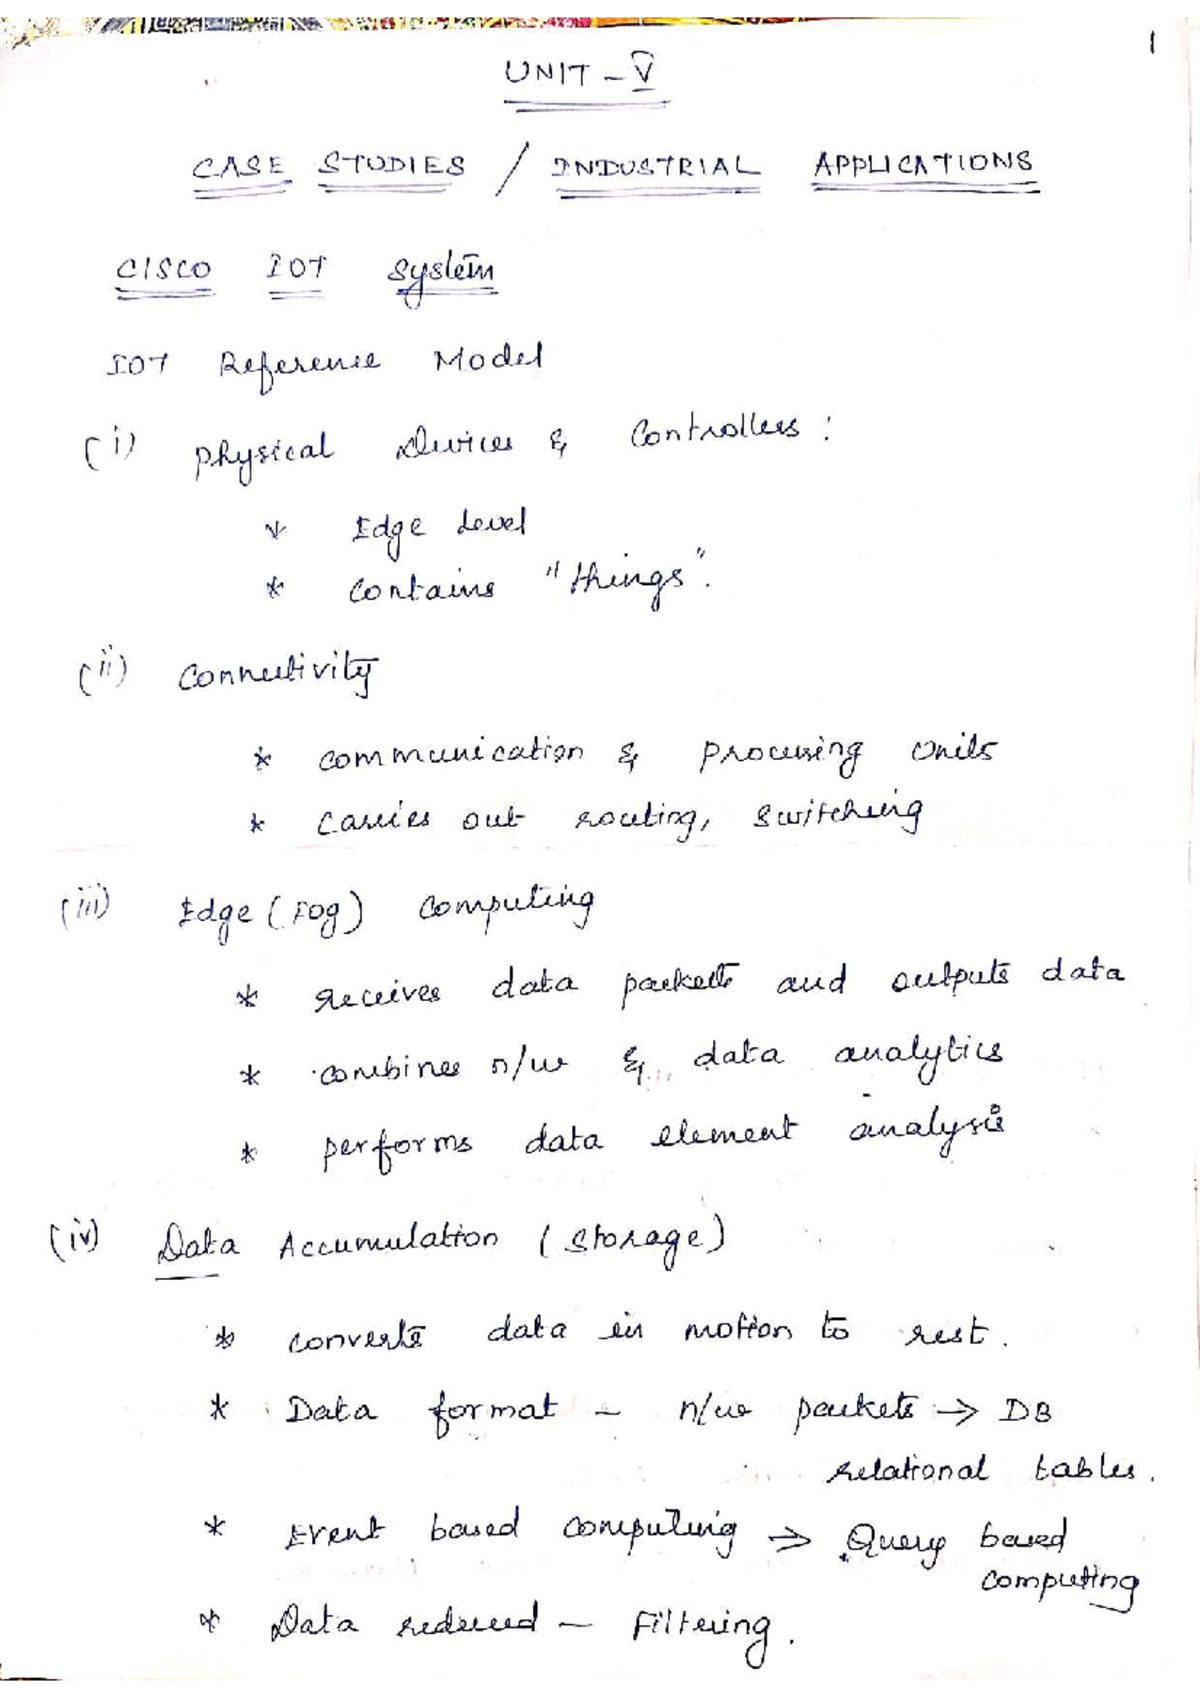 1
UNIT - V
CASE STUDIES / INDUSTRIAL APPLICATIONS
CISCO IOT System
IOT Reference Model
(i) Physical Devices & Controllers :
* Edge Level
* Contains "things".
(ii) Connectivity
* communication & processing units
* carries out routing, switching
(iii) Edge (Fog) computing
* receives data packets and outputs data
* combines n/w & data analytics
* performs data element analysis
(iv) Data Accumulation (Storage)
* converts data in motion to rest.
* Data format - n/w packets → DB
relational tables.
* Event based computing ⇒ Query based
computing
* Data reduced - Filtering.